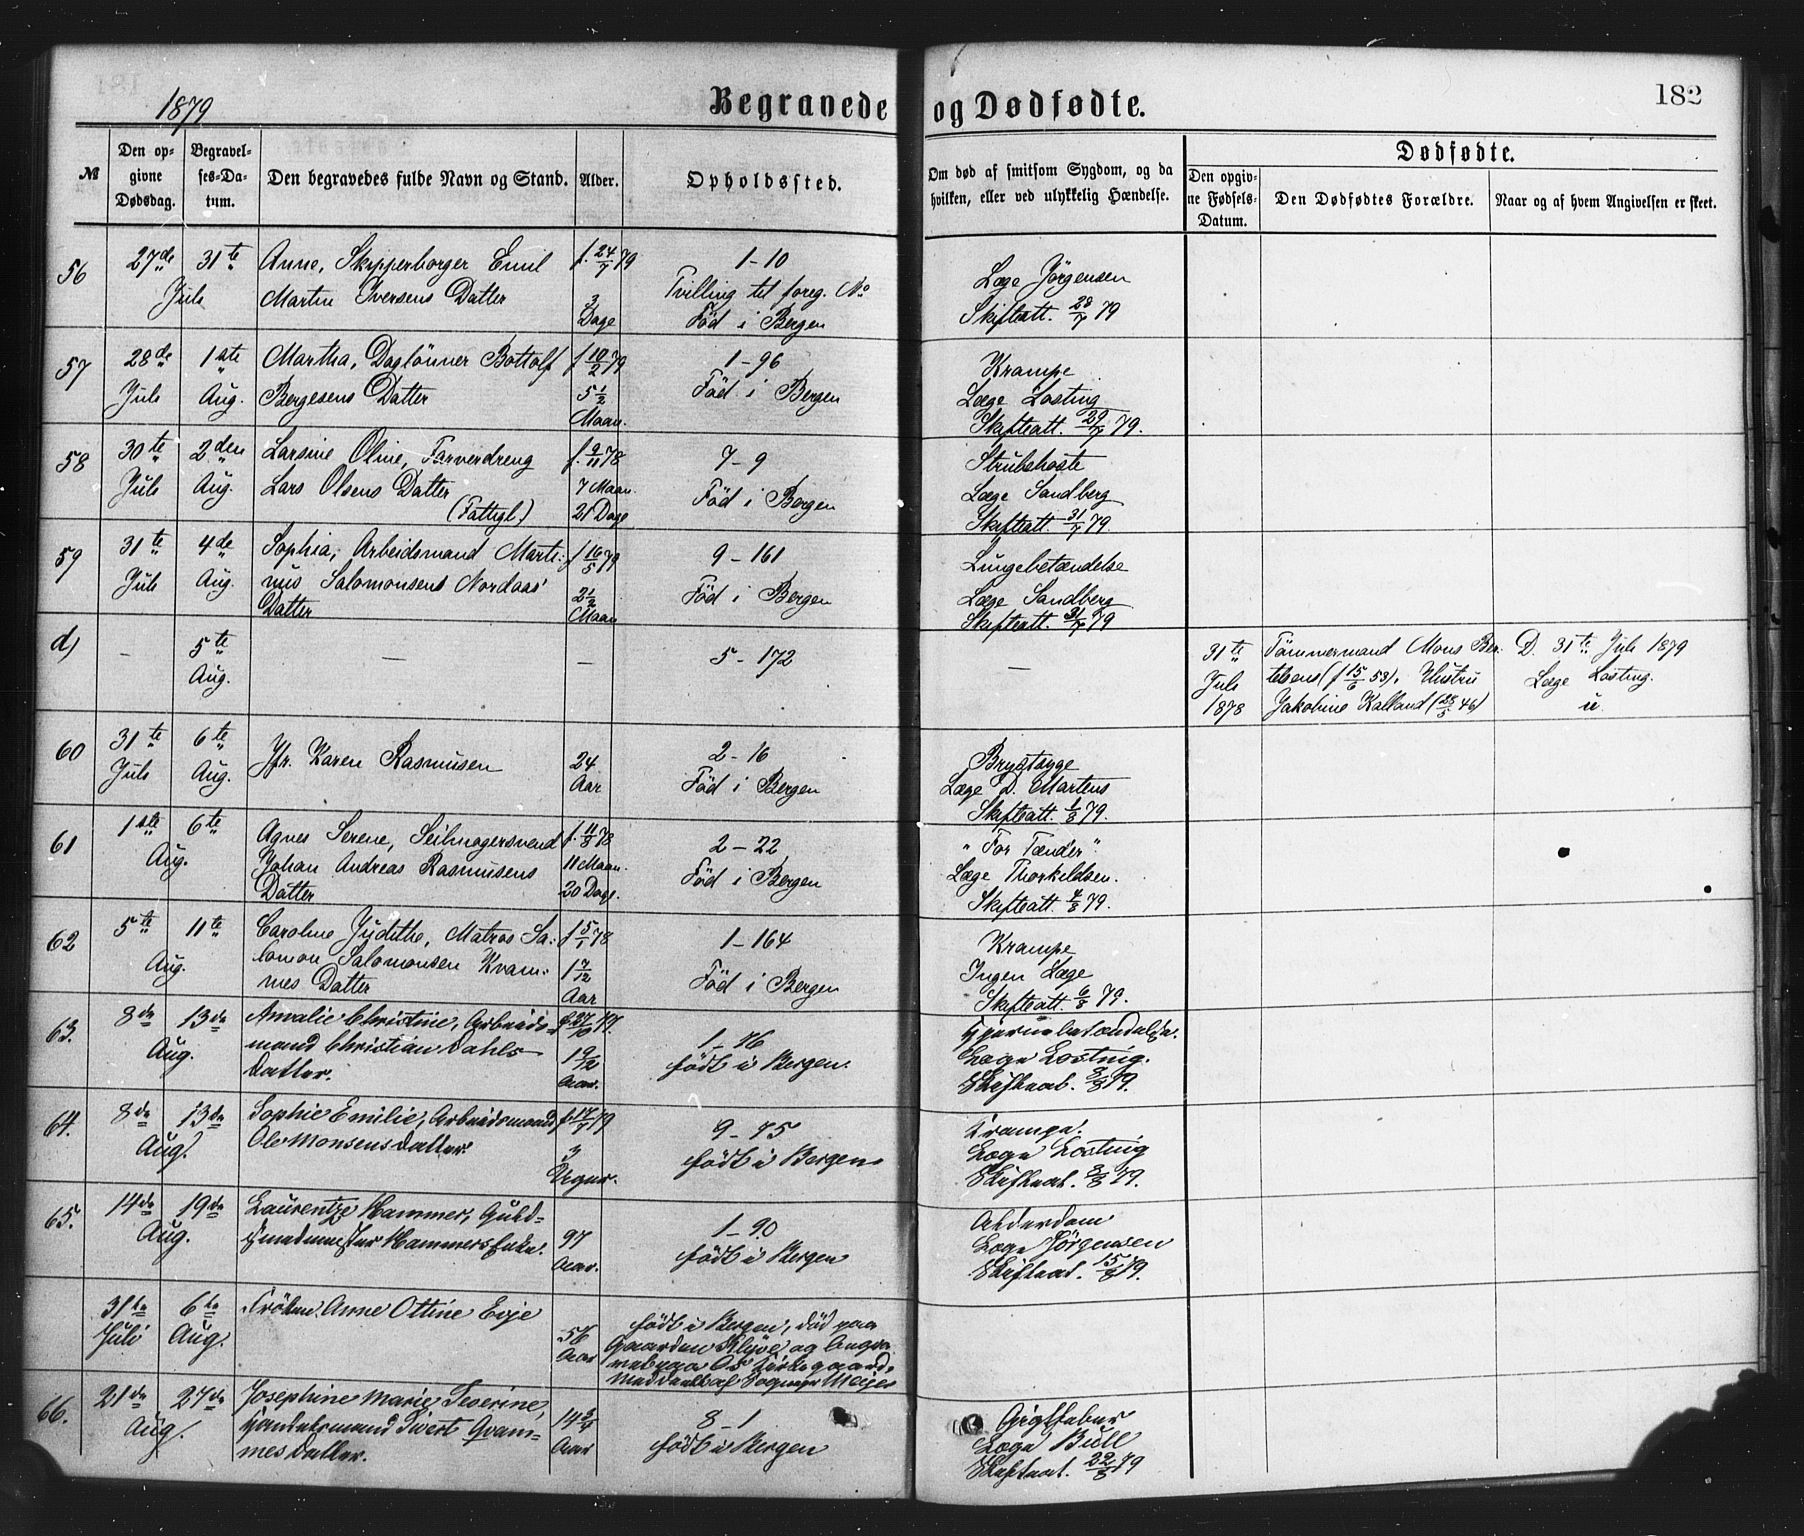 1879
Begravede og Dødfødte.
182
№
Den opgivne Dødsdag.
Begravelses-Datum.
Den begravedes fulde Navn og Stand.
Alder.
Opholdssted.
Om død af smitsom Sygdom, og da hvilken, eller ved ulykkelig Hændelse.
Dødfødte.
Den opgivne Fødsels-Datum.
Den Dødfødtes Forældre.
Naar og af hvem Angivelsen er skeet.
56
27de Juli
31te
Anne, Skipperborger Emil
Martin Iversens Datter
f. 24/7 79
3 Dage
1-10
Tvilling til foreg. No
Föd i Bergen
Læge Jörgensen
Skifteatt. 28/7 79
57
28de Juli
1ste Aug.
Martha, Daglönner Bottolf
Bergesens Datter
f 10/2 79
5 1/2 Maan.
1-96
Föd i Bergen
Krampe
Læge Losting
Skifteatt. 29/7 79.
58
30te Juli
2den Aug.
Larsine Oline, Farverdreng
Lars Olsens Datter
(Fattigl.)
f. 9/11 78
7 Maan.
21 Dage
7-9
Föd i Bergen
Strubehoste
Læge Sandberg
Skifteatt. 31/7 79.
59
31te Juli
4de Aug.
Sophia, Arbeidsmand Marti-
nus Salomonsens Nordaas'
Datter
f 16/5 79
2 1/2 Maan
9-161
Föd i Bergen
Lungebetændelse
Læge Sandberg
Skifteatt. 31/7 79
d)
-
5te Aug.
-
-
5-172
-
31te Juli 1878
Tömmermand Mons Ber-
telsens (f 15/6 53), Hustru
Jakobine Kalland (28/5 46)
D. 31te Juli 1879
Læge Losting.
u.
60
31te Juli
6te Aug.
Jfr. Karen Rasmusen
24 Aar
2-16
Föd i Bergen
Brystsyge
Læge D. Martens
Skifteatt. 1/8 79.
61
1ste Aug.
6te
Agnes Serene, Seilmagersvend
Johan Andreas Rasmusens
Datter
f. 11/8 78
11 Maan.
20 Dage.
2-22
Föd i Bergen
"For Tænder"
Læge Thorkildsen.
Skifteatt. 4/8 79.
62
5te Aug.
11te
Caroline Judithe, Matros Sa-
lomon Salomonsen Kvam-
mes Datter
f 5/1 78
1 7/12 Aar
1-164
Föd i Bergen
Krampe
Ingen Læge
Skifteatt. 6/8 79.
63.
8de Aug.
13de
Amalie Christine, Arbeids-
mand Christian Dahls
Datter.
1 9/12 Aar.
1-76
født i Bergen.
Hjernebetændelse.
Læge Losting.
Skifteat. 8/8 79.
64.
8de Aug.
13de
Sophie Emilie, Arbeidsmand
Ole Monsens Datter.
f. 17/7 79
3 Uger.
9-75
født i Bergen
Krampe.
Læge Losting
Skifteat. 8/8 79.
65.
14de Aug.
19de
Laurentze Hammer, Guld-
smedmester Hammers Enke.
97 Aar.
1-90
født i Bergen
Alderdom
Læge Jørgensen
Skifteat. 15/8 79.
31te Juli
6te Aug.
Frøken Anne Ottine Evje
56 Aar
født i Bergen, død paa
Gaarden Kløve og begra-
vet paa Os Kirkegaard.
66.
21de Aug.
27de
Josephine Marie Severine,
Handelsmand Sivert Qvam-
mes Datter.
14 Aar
8-1
født i Bergen
Gigtfeber
Læge Bull
Skifteat. 22/8 79